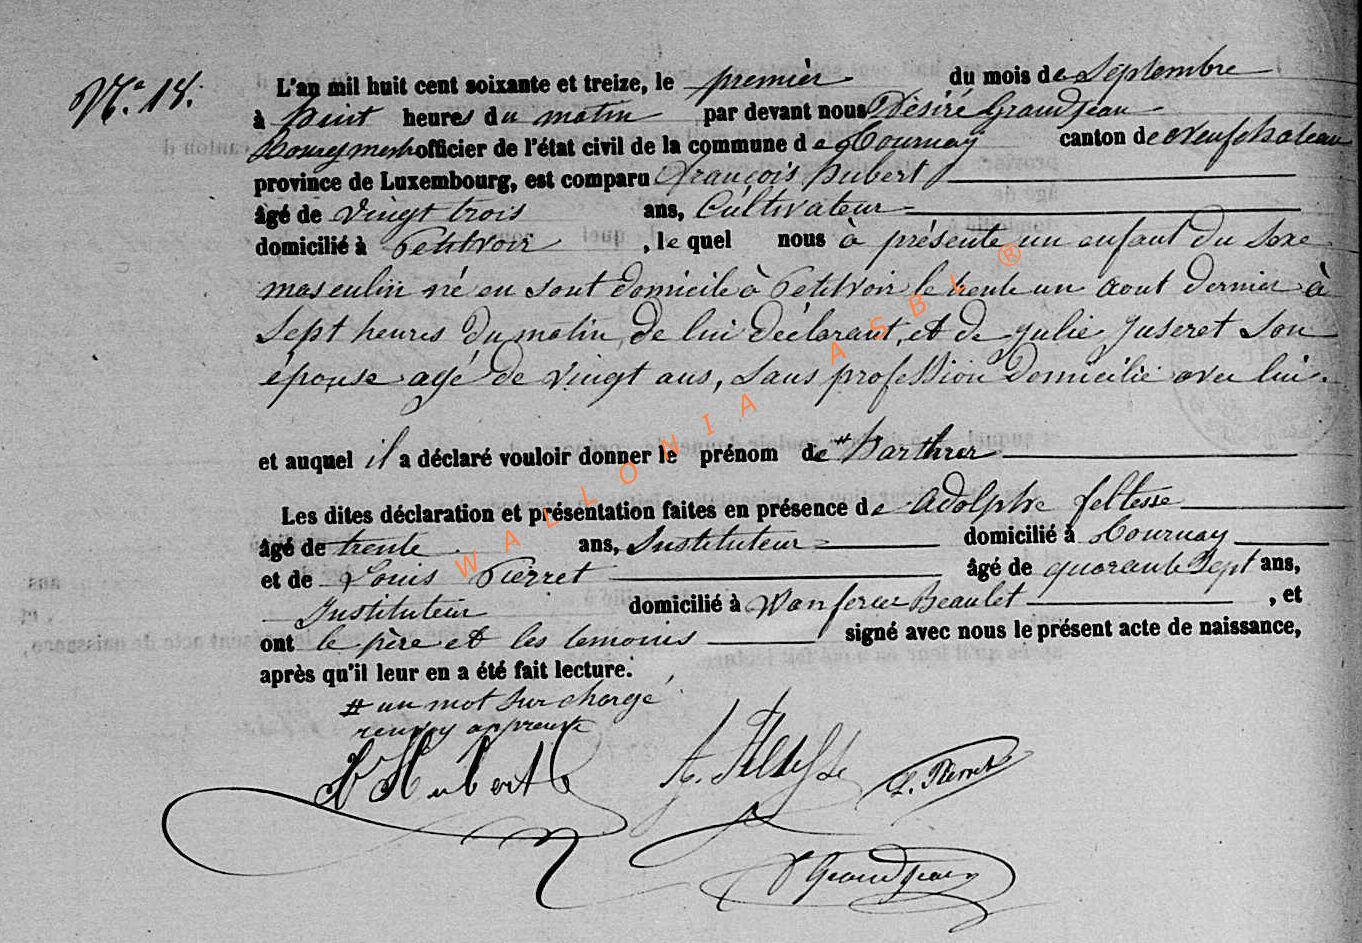 N.º 18.
L'an mil huit cent soixante et treize, le premier du mois de Septembre
à huit heures du matin par devant nous Désiré Grandjean
Bourgmestre officier de l'état civil de la commune de Tournay canton de Neufchateau
province de Luxembourg, est comparu François Hubert
âgé de vingt trois ans, Cultivateur
domicilié à Petitvoir, le quel nous à présenté un enfant du sexe
masculin né en sont domicile à Petitvoir le trente un aout dernier à
sept heures du matin, de lui déclarant, et de Julie Juseret son
épouse agé de vingt ans, sans profession domicilié avec lui.
et auquel il a déclaré vouloir donner le prénom de #
Les dites déclaration et présentation faites en présence de Adolphe Feltesse
âgé de trente ans, Instituteur domicilié à Tournay
et de Louis Pierret âgé de quarante sept ans,
Instituteur domicilié à, et
ont le père et les temoins signé avec nous le présent acte de naissance,
après qu'il leur en a été fait lecture.
# un mot surchargé
renvoy approuvé
Hubert
L. Pierret
D Grandjean
WALLONIA ASBL ®